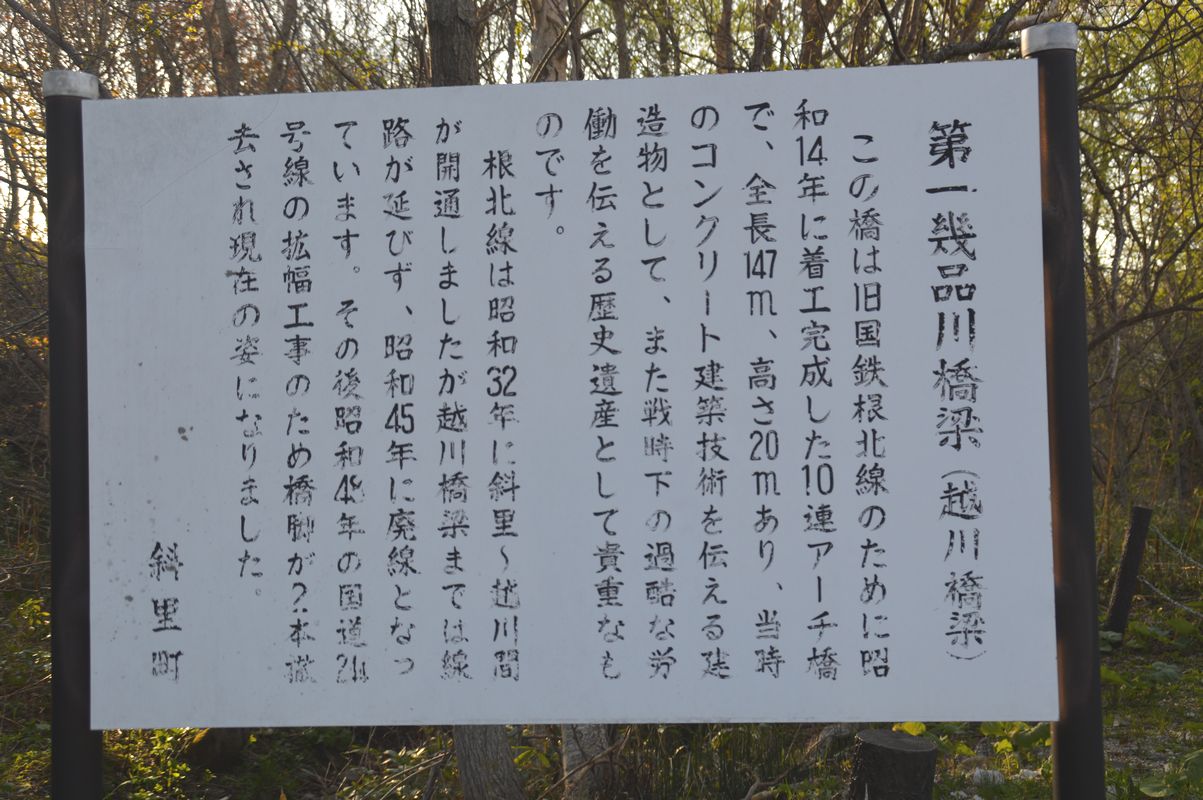 第一幾品川橋梁（越川橋梁）
この橋は旧国鉄根北線のために昭
和14年に着工完成した10連アーチ橋
で、全長147m、高さ20mあり、当時
のコンクリート建築技術を伝える建
造物として、また戦時下の過酷な労
働を伝える歴史遺産として貴重なも
のです。
根北線は昭和32年に斜里〜越川間
が開通しましたが越川橋梁までは線
路が延びず、昭和45年に廃線となっ
ています。その後昭和4年の国道2
号線の拡幅工事のため橋脚が2本撤
去され現在の姿になりました。
斜里町